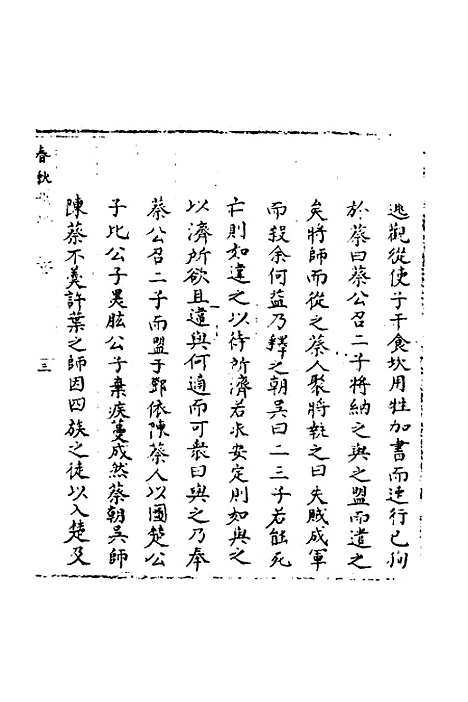 逃觀從使子干食坎用牲加書而速行已徇
於蔡曰蔡公召二子將納之與之盟而遣之
矣將師而從之蔡人聚將執之曰失賊成軍
而殺余何益乃釋之朝吳曰二三子若能死
亡則如違之以待所濟若求安定則如與之
以濟所欲且違與何適而可衆曰與之乃奉
蔡公召二子而盟于鄧依陳蔡人以國楚公
子比公子黑肱公子棄疾蔓成然蔡朝吳師
陳蔡不羹許葉之師因四族之徒以入楚及
春秋
三